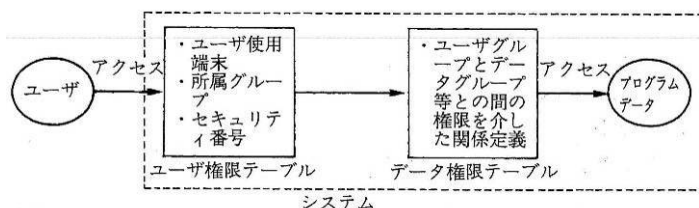 ユーザ
アクセス
・ユーザ使用
端末
・所属グルー
プ
・セキュリテ
ィ番号
ユーザ権限テーブル
・ユーザグル
ープとデー
タグループ
等との間の
権限を介し
た関係定義
データ権限テーブル
アクセス
プログラム
データ
システム